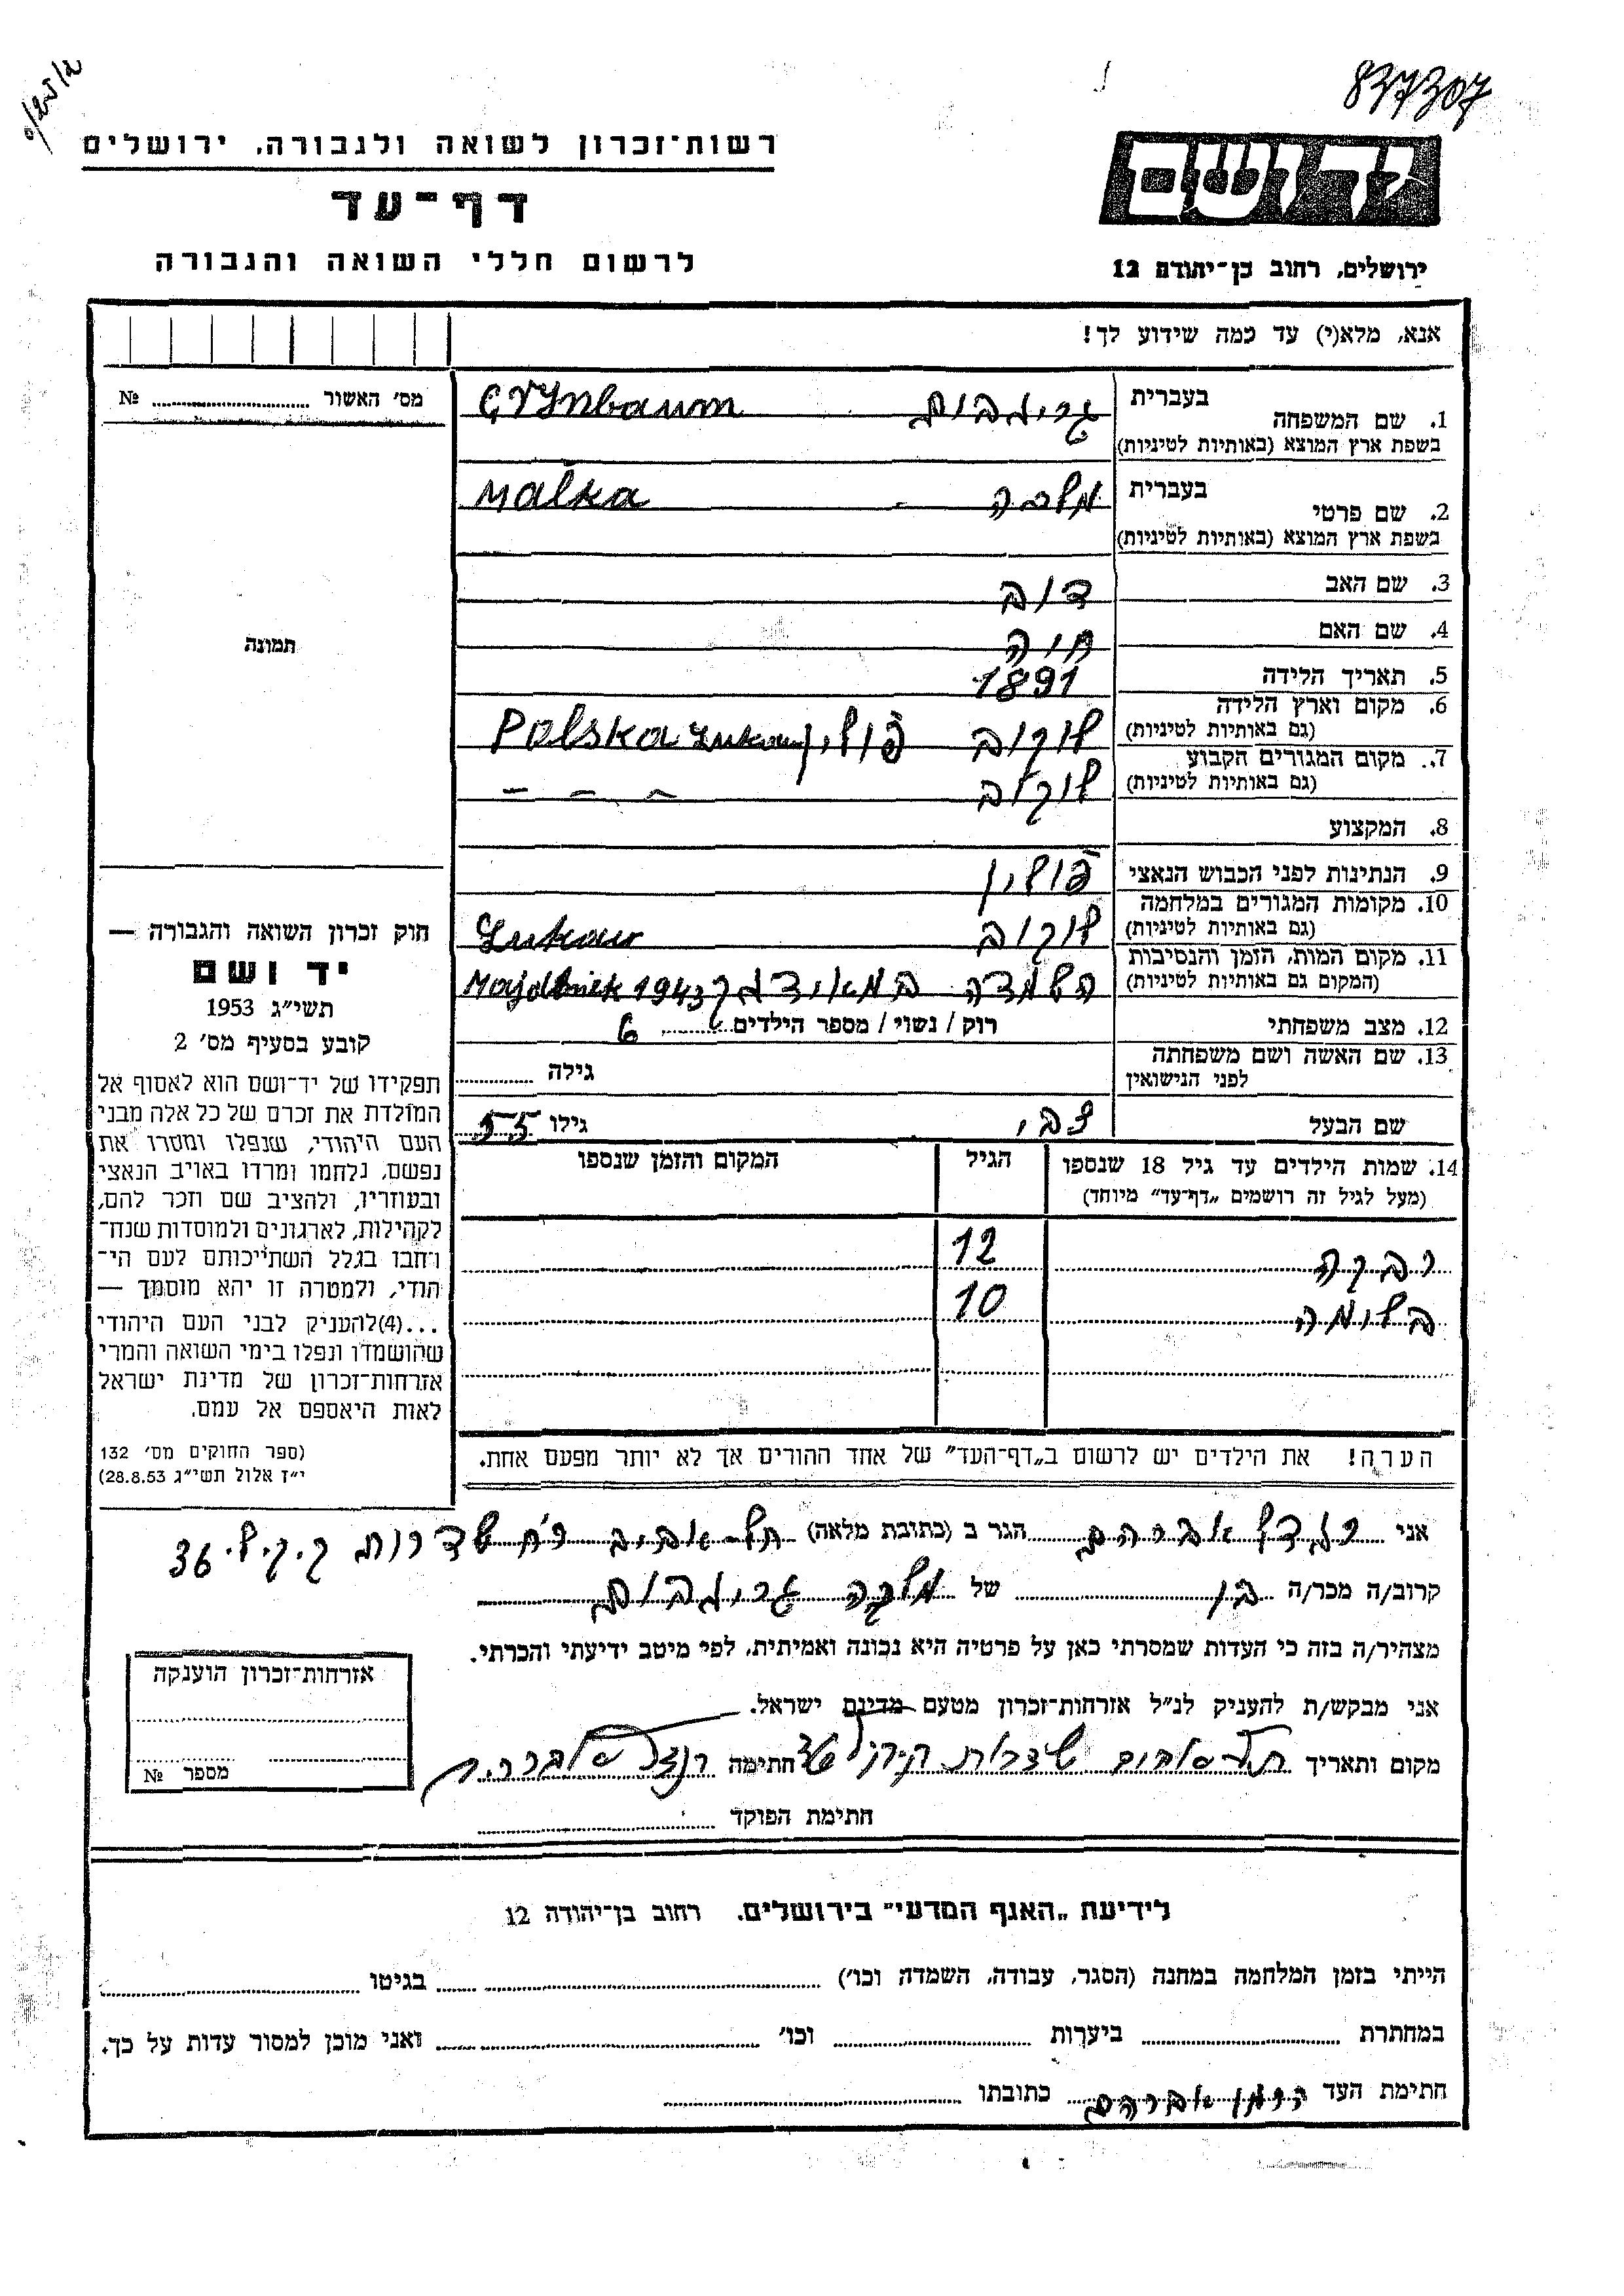 837307
רשות־זכרון לשואה ולגבורה, ירושלים
דף־עד
לרשום חללי השואה והגבורה
יד ושם
ירושלים, רחוב בן־יהודה 12
אנא, מלא(י) עד כמה שידוע לך!
מס׳ האשור № ........
1. שם המשפחה בעברית גרינבוים Grynbaum
בשפת ארץ המוצא (באותיות לטיניות)
2. שם פרטי בעברית מלכה Malka
בשפת ארץ המוצא (באותיות לטיניות)
3. שם האב דוב
4. שם האם חוה
5. תאריך הלידה 1891
6. מקום וארץ הלידה (גם באותיות לטיניות) לוקוב פולין Polska Łukow
7. מקום המגורים הקבוע (גם באותיות לטיניות) לוקוב - - -
8. המקצוע
9. הנתינות לפני הכבוש הנאצי פולין
10. מקומות המגורים במלחמה (גם באותיות לטיניות) לוקוב Łukow
11. מקום המות, הזמן והנסיבות (המקום גם באותיות לטיניות) השמדה במאידנק 1943
12. מצב משפחתי רוק / נשוי / מספר הילדים 6
13. שם האשה ושם משפחתה לפני הנישואין גילה ........
שם הבעל צבי גילו 55
14. שמות הילדים עד גיל 18 שנספו הגיל המקום והזמן שנספו
(מעל לגיל זה רושמים „דף־עד” מיוחד)
רבקה 12
בלומה 10
הערה! את הילדים יש לרשום ב„דף־העד” של אחד ההורים אך לא יותר מפעם אחת.
תמונה
חוק זכרון השואה והגבורה —
יד ושם
תשי״ג 1953
קובע בסעיף מס׳ 2
תפקידו של יד־ושם הוא לאסוף אל
המולדת את זכרם של כל אלה מבני
העם היהודי, שנפלו ומסרו את
נפשם, נלחמו ומרדו באויב הנאצי
ובעוזריו, ולהציב שם וזכר להם,
לקהילות, לארגונים ולמוסדות שנח־
רבו בגלל השתייכותם לעם הי־
הודי, ולמטרה זו יהא מוסמך —
...(4) להעניק לבני העם היהודי
שהושמדו ונפלו בימי השואה והמרי
אזרחות־זכרון של מדינת ישראל
לאות היאספם אל עמם.
(ספר החוקים מס׳ 132
י״ז אלול תשי״ג 28.8.53)
אני אברהם הגר ב (כתובת מלאה) תל-אביב שדרות ק.ק.ל. 36
קרוב/ה מכר/ה בן של מלכה גרינבוים
מצהיר/ה בזה כי העדות שמסרתי כאן על פרטיה היא נכונה ואמיתית, לפי מיטב ידיעתי והכרתי.
אני מבקש/ת להעניק לנ״ל אזרחות־זכרון מטעם מדינת ישראל.
מקום ותאריך שדרות חתימה
חתימת הפוקד ........
אזרחות־זכרון הוענקה
מספר №
לידיעת „האגף המדעי” בירושלים. רחוב בן־יהודה 12
הייתי בזמן המלחמה במחנה (הסגר, עבודה, השמדה וכו׳) ........ בגיטו ........
במחתרת ........ ביערות ........ וכו׳ ........ ואני מוכן למסור עדות על כך.
חתימת העד אברהם כתובתו ........